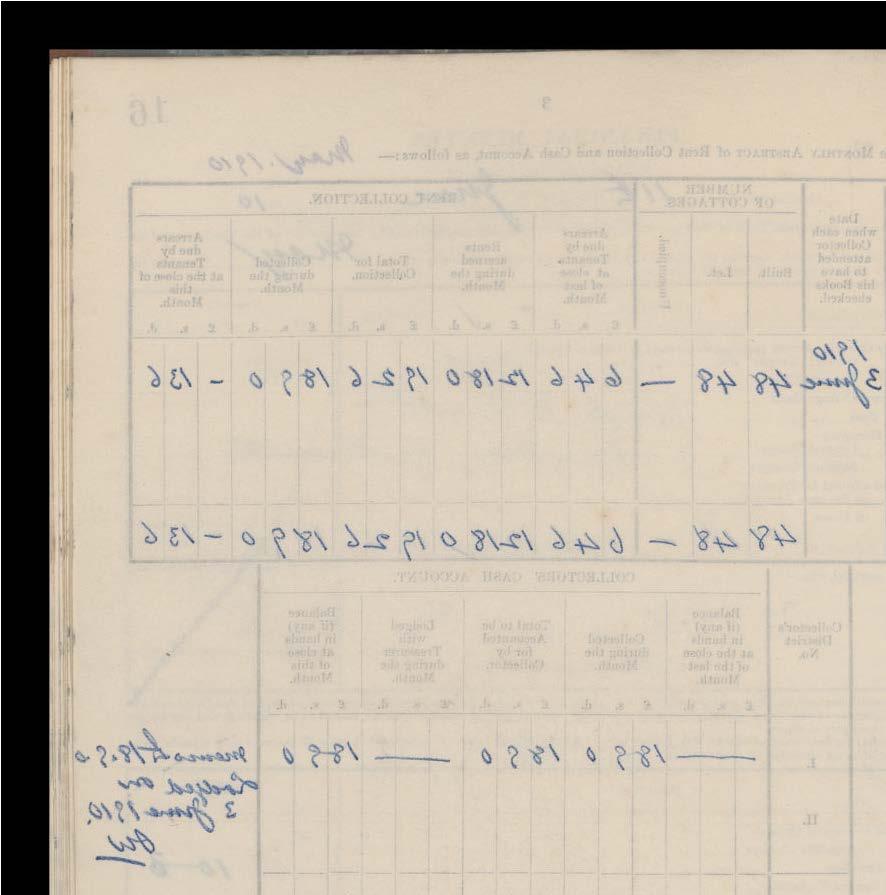 16
3
e MONTHLY ABSTRACT of Rent Collection and Cash Account, as follows:— May. 1910
Date when each Collector attended to have his Books checked.
NUMBER OF COTTAGES.
Built.
Let.
Unoccupied.
RENT COLLECTION.
Arrears due by Tenants at close of last Month.
Rents accrued during the Month.
Total for Collection.
Collected during the Month.
Arrears due by Tenants at the close of this Month.
£ s. d. £ s. d. £ s. d. £ s. d. £ s. d.
1910
3 June 48 48 — 6 4 6 12 18 0 19 2 6 18 9 0 - 13 6
48 48 — 6 4 6 12 18 0 19 2 6 18 9 0 - 13 6
COLLECTORS' CASH ACCOUNT.
Collector's District No.
Balance (if any) in hands at the close of the last Month.
Collected during the Month.
Total to be Accounted for by Collector.
Lodged with Treasurer during the Month.
Balance (if any) in hands at close of this Month.
£ s. d. £ s. d. £ s. d. £ s. d. £ s. d.
I. — 18 9 0 18 9 0 — 18 9 0
II.
18.9.0
Lodged on
3 June 1910.